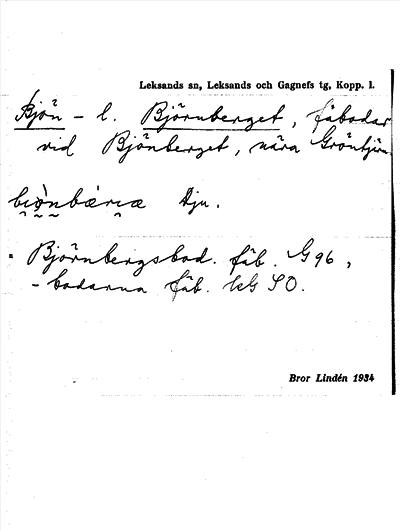 Leksands sn, Leksands och Gagnefs tg, Kopp. l.
Bjön - l. Björnberget, fäbodar
vid Bjönberget, nära Gröntjärn
Dju.
= Björnbergsbod. fäb. G96,
- bodarna fäb. SO.
Bror Lindén 1934